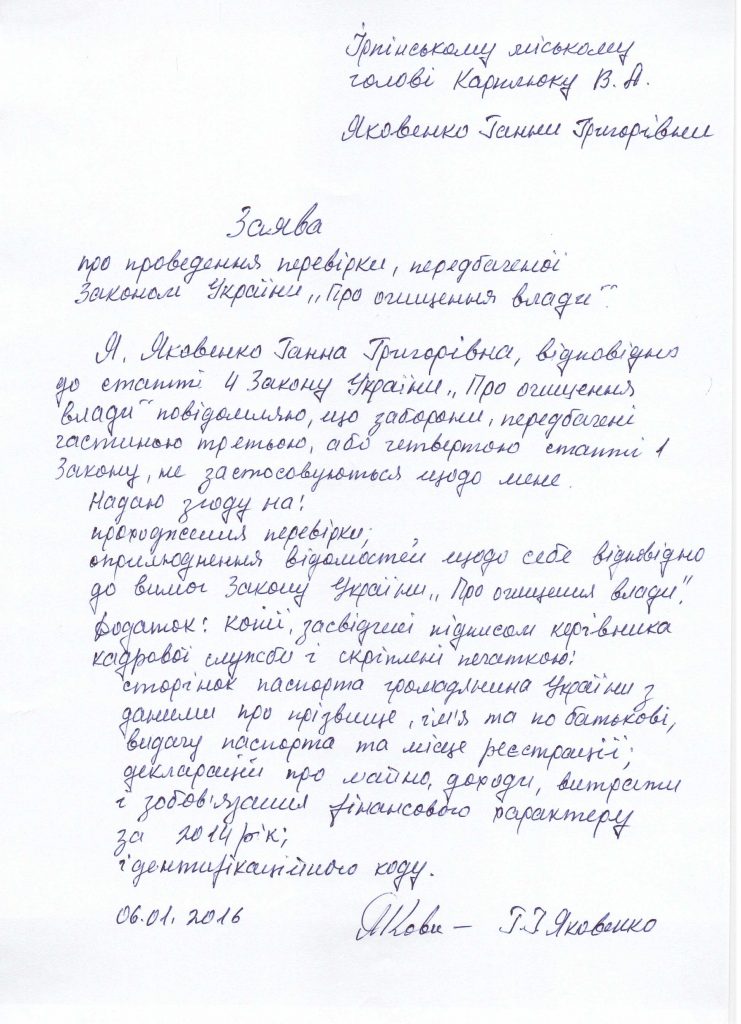 Ірпінському міському
голові Карплюку В. А.
Яковенко Ганни Григорівни
Заява
про проведення перевірки, передбаченої
Законом України „Про очищення влади“.
Я, Яковенко Ганна Григорівна, відповідно
до статті 4 Закону України „Про очищення
влади“ повідомляю, що заборони, передбачені
частиною третьою, або четвертою статті 1
Закону, не застосовуються щодо мене.
Надаю згоду на:
проходження перевірки;
оприлюднення відомостей щодо себе відповідно
до вимог Закону України „Про очищення влади“.
Додаток: копії, засвідчені підписом керівника
кадрової служби і скріплені печаткою:
сторінок паспорта громадянина України з
даними про прізвище, ім'я та по батькові,
видачу паспорта та місце реєстрації;
декларації про майно, доходи, витрати
і зобов'язання фінансового характеру
за 2014 рік;
ідентифікаційного коду.
06.01.2016 Яковен– Г.Г Яковенко